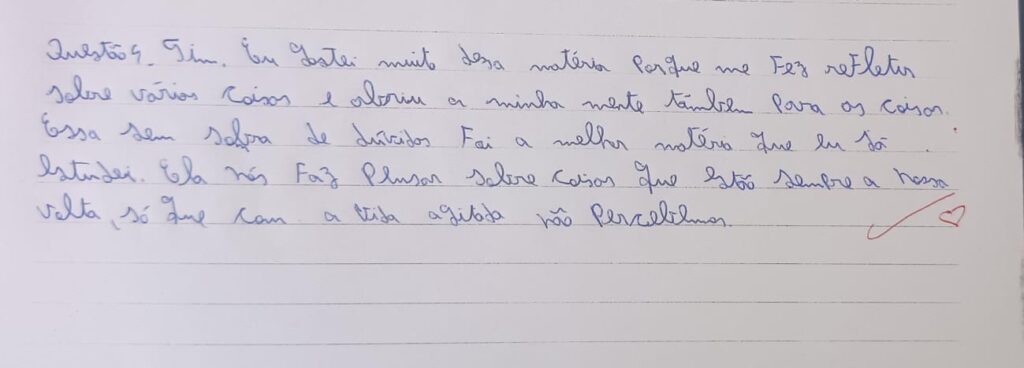 Questão 4. Sim. Eu gostei muito dessa matéria porque me fez refletir
sobre várias coisas e abriu a minha mente também para as coisas.
Essa sem sobra de dúvidas foi a melhor matéria que eu já
estudei. Ela nós faz pensar sobre coisas que estão sempre a nossa
volta, só que com a vida agitada não percebemos.